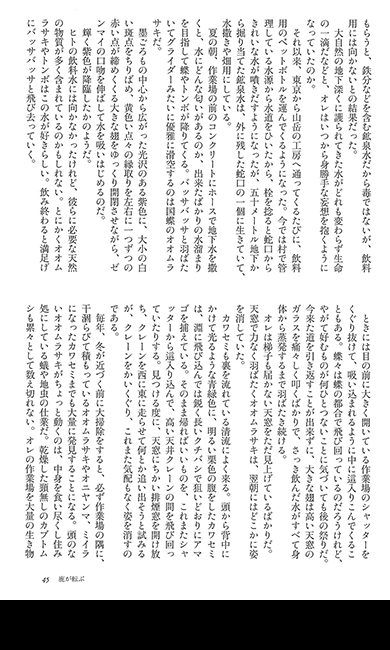 もらうと、鉄分などを含む鉱泉水だから毒ではないが、飲料
用には向かないとの結果だった。
　大自然の地下深くに護られてきた水がどれも変わらず生命
の一滴だなどと、オレはいつから身勝手な妄想を抱くように
なっていたのか。
　それ以来、東京から山岳の工房へ通ってくるたびに、飲料
用のペットボトルを運んでくるようになった。今では村で管
理している水源から水道をひいたから、栓を捻ると蛇口から
きれいな水が噴きだすようになったが、五十メートル地下か
ら掘り当てた鉱泉水は、外に残した蛇口の一個に生きていて、
水撒きや畑用にしている。
　夏の朝、作業場の前のコンクリートにホースで地下水を撒
くと、水にどんな匂いがあるのか、出来たばかりの水溜まり
を目指して蝶やトンボが降りてくる。バッサバッサと羽ばた
いてグライダーみたいに優雅に滑空するのは国蝶のオオムラ
サキだ。
　墨ごろもの中心から広がった光沢のある紫色に、大小の白
い斑点をちりばめ、黄色い点々の縁取りを左右に一つずつの
赤い点が締めくくる大きな翅をゆっくり開閉させながら、ゼ
ンマイの口吻を伸ばして水を吸いはじめるのだ。
　輝く紫色が降臨したかのようだ。
　ヒトの飲料水には向かなかったけれど、彼らに必要な天然
の物質が多く含まれているのかもしれない。とにかくオオム
ラサキやトンボはこの水が好きらしい。飲み終わると満足げ
にバッサバッサと飛び去っていく。
　ときには目の前に大きく開いている作業場のシャッターを
くぐり抜けて、吸い込まれるように中に這入りこんでくるこ
ともある。蝶々は蝶の都合で飛び回っているのだろうけれど、
やがて好むものが何ひとつないことに気づいても後の祭りだ。
今来た道を引き返すことが出来ずに、大きな翅は高い天窓の
ガラスを痛々しく叩くばかりで、さっき飲んだ水がすべて身
体から蒸発するまで羽ばたき続ける。
　オレは梯子も届かない天窓をただ見上げているばかりだ。
　天窓で力なく羽ばたくオオムラサキは、翌朝にはどこかに姿
を消していた。
　カワセミも裏を流れている清流によく来る。頭から背中に
かけて光るような青緑色に、明るい栗色の腹をしたカワセミ
は、淵に飛び込んでは鋭く長いクチバシで狙いどおりにアマ
ゴを捕えている。そのまま帰ればいいものを、これまたシャ
ッターから這入り込んで、高い天井クレーンの間を飛び回っ
ていたりする。見つける度に、天窓にちかい排煙窓を開け放
ち、クレーンを西に東に走らせて何とか追い出そうと試みる
が、クレーンをかいくぐり、これまた気配もなく姿を消すの
である。
　毎年、冬が近づく前に大掃除をすると、必ず作業場の隅に、
干涸らびて積もっているオオムラサキやオニヤンマ、ミイラ
になったカワセミまでも大量に発見することになる。頭のな
いオオムラサキがちょっと動くのは、中身を食い尽くし住み
処にしている蟻や地虫の仕業だ。乾燥した頭無しのカブトム
シも累々として数え切れない。オレの作業場を大量の生き物
45　鹿が転ぶ